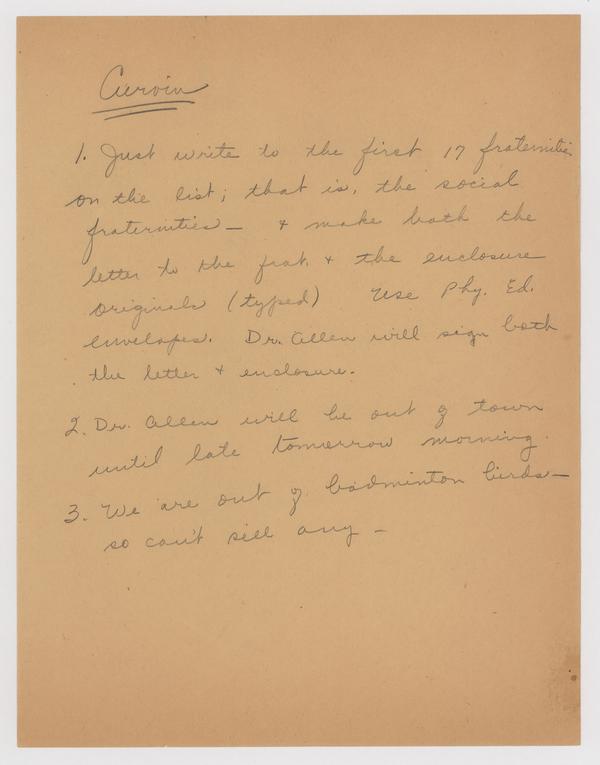 Curvin
1. Just write to the first 17 fraternities
on the list; that is, the social
fraternities — + make both the
letter to the frat. + the enclosure
originals (typed) Use Phy. Ed.
envelopes. Dr. Allen will sign both
the letter + enclosure.
2. Dr. Allen will be out of town
until late tomorrow morning.
3. We are out of badminton birds —
so can't sell any —